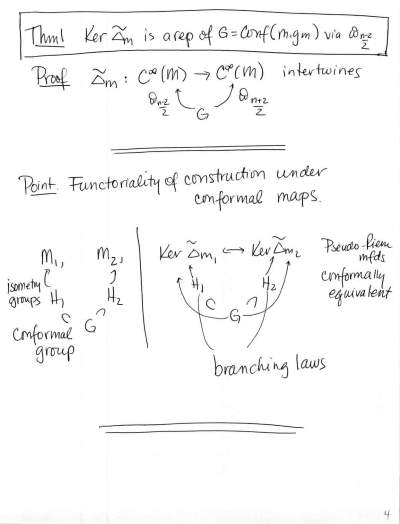 Thm1 Ker Δ̃_m is a rep of G = Conf(M, g_m) via ϖ_{n-2/2}
Proof Δ̃_m : C^∞(M) → C^∞(M) intertwines
ϖ_{n-2/2} G ϖ_{n+2/2}
Point. Functoriality of construction under
conformal maps.
M₁, M₂,
isometry
groups H₁ H₂
conformal G
group
Ker Δ̃_{m₁} ↔ Ker Δ̃_{m₂}
H₁ H₂
⊂ G ⊃
branching laws
Pseudo-Riem
mfds
conformally
equivalent
4